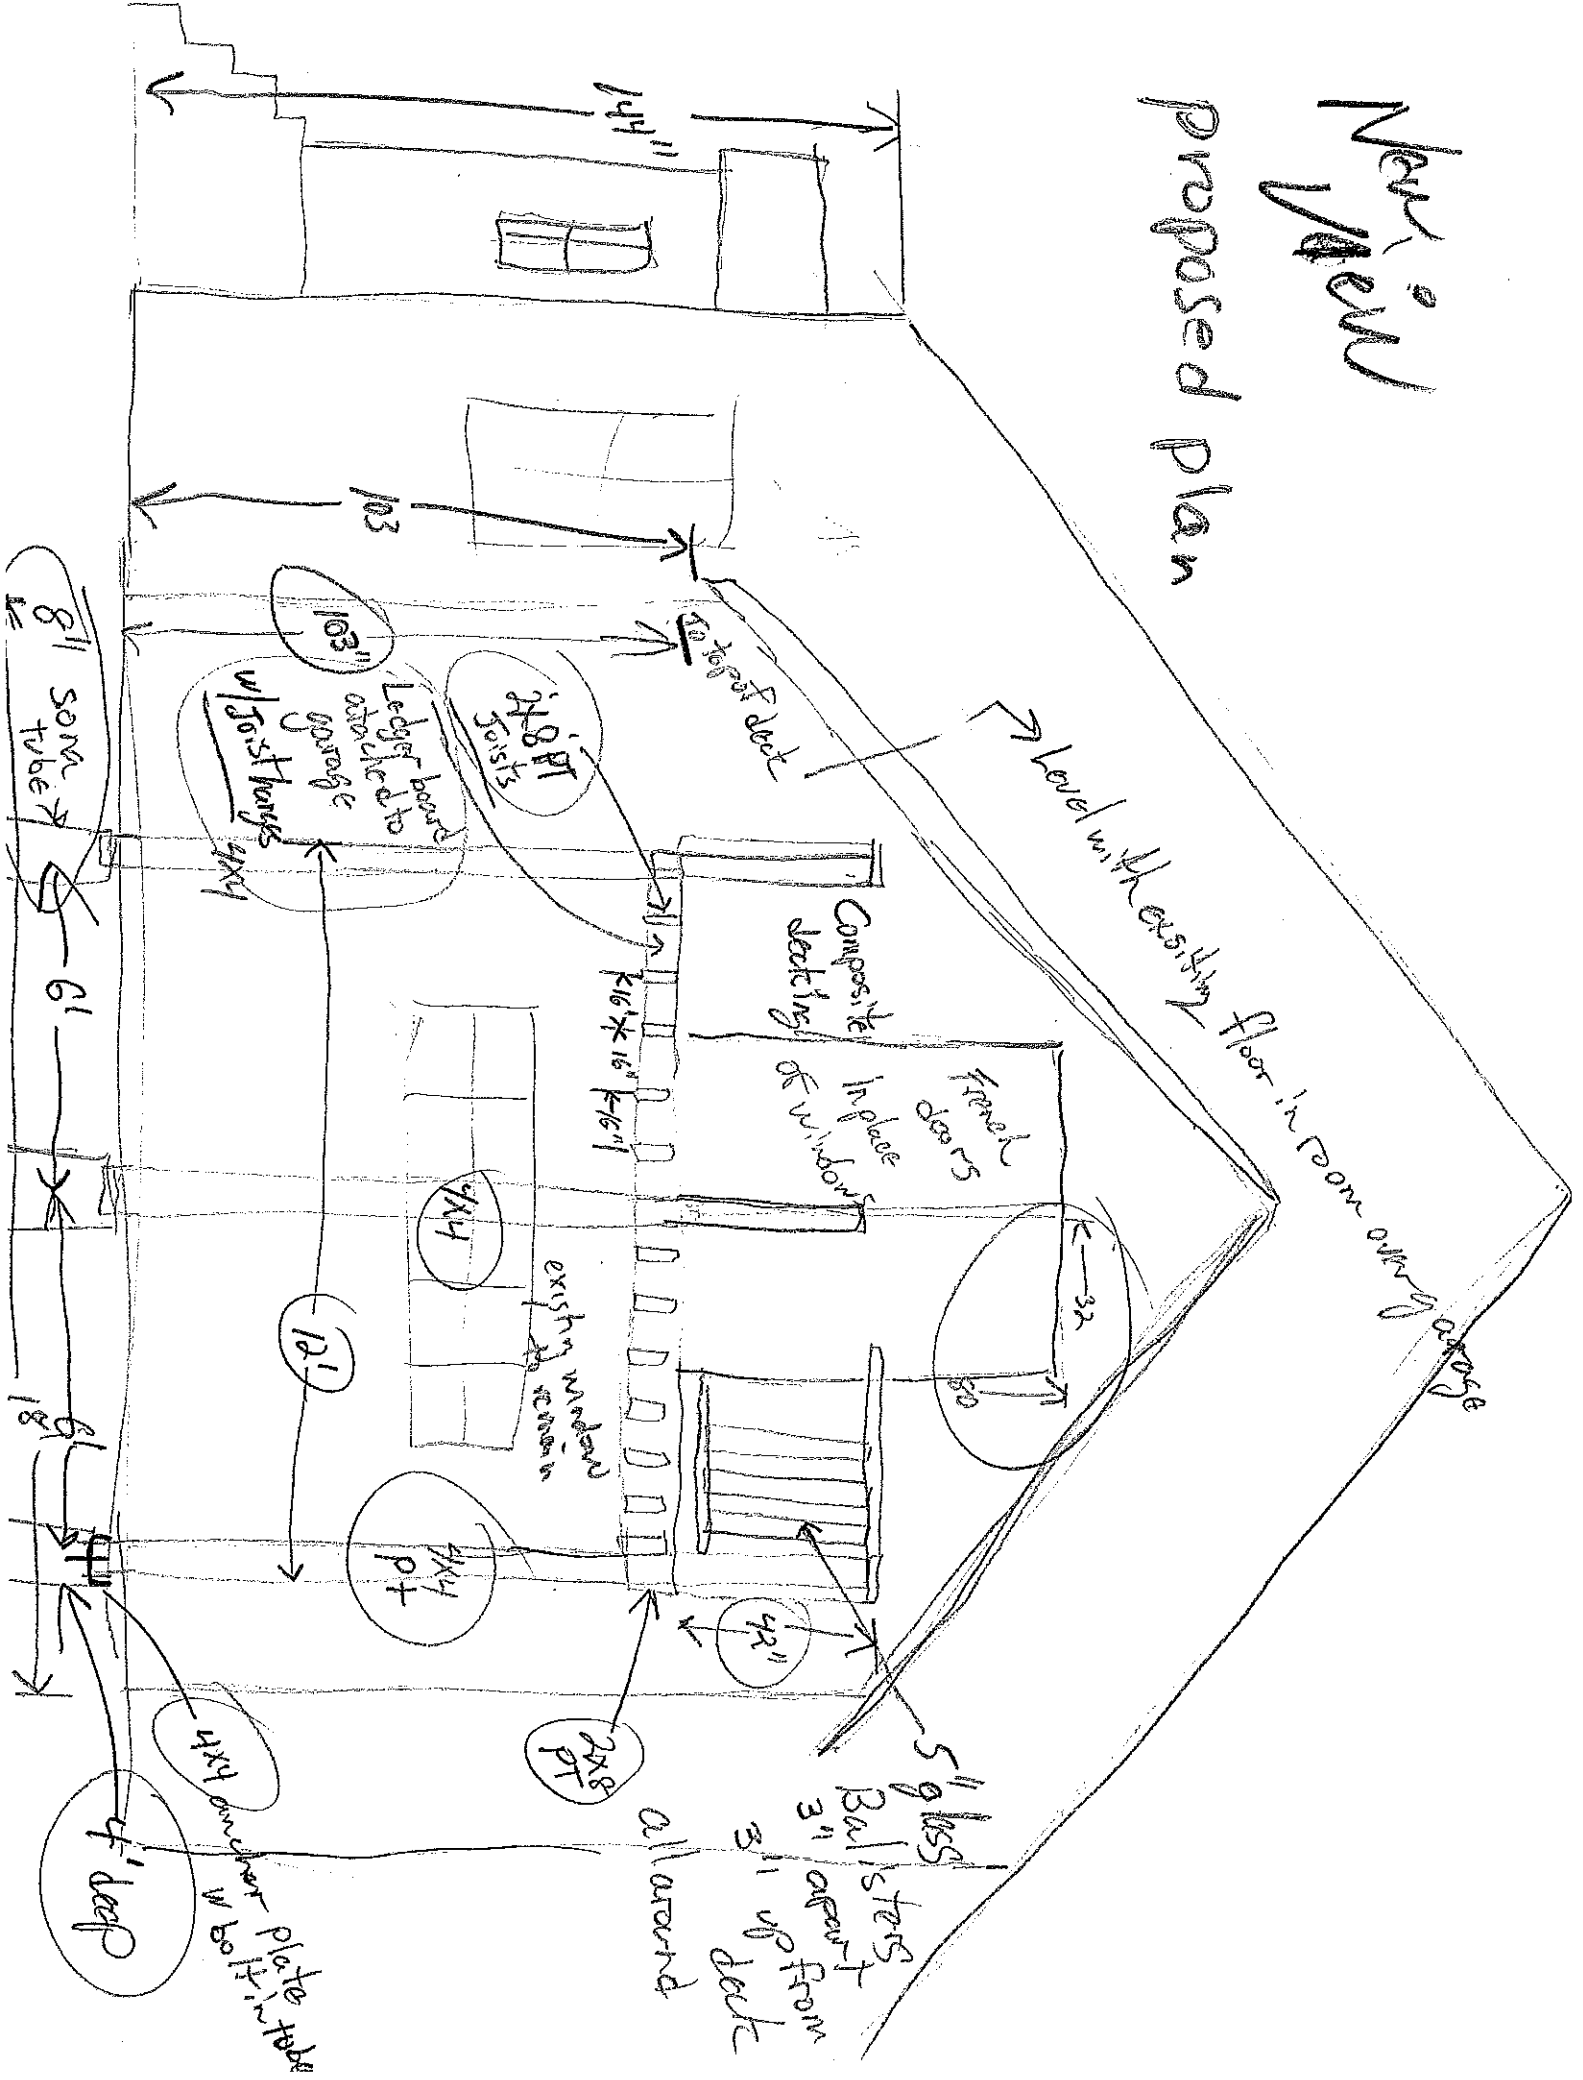 New View
proposed plan
144"
103
103"
To top of deck
Level with exsiting floor in room over garage
2x8 PT
Joists
Ledger board
attached to
garage
w/Joist hangers
4x4
Composite
decking
French
doors
in place
of windows
32
80
16"
16"
16"
4x4
existing window
to remain
12'
4x4
pt
42"
2x8
PT
5" glass
Balisters
3" apart
3" up from
deck
all around
8" sona
tube
6'
6'
18'
4x4 ancher plate
w bolt in tube
4' deep